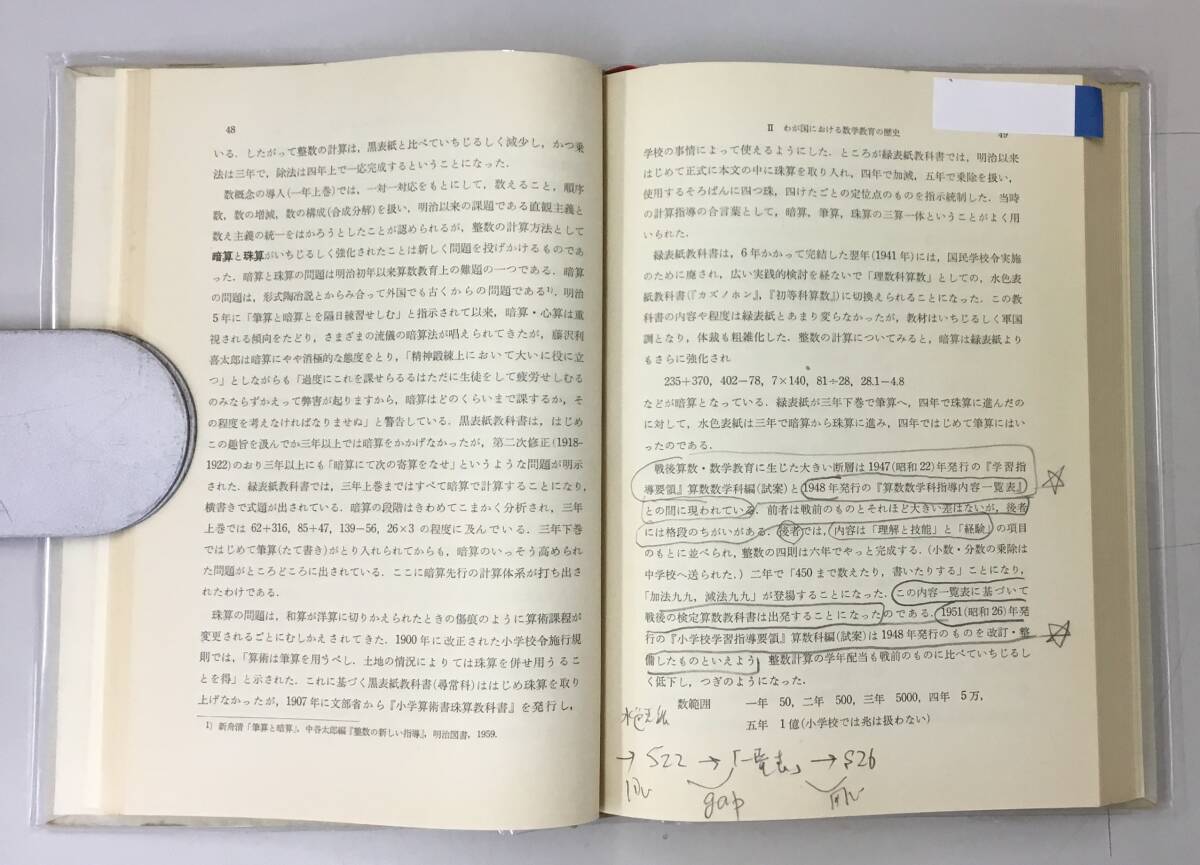 48
いる．したがって整数の計算は，黒表紙と比べていちじるしく減少し，かつ乗
法は三年で，除法は四年上で一応完成するということになった．
数概念の導入(一年上巻)では，一対一対応をもとにして，数えること，順序
数，数の増減，数の構成(合成分解)を扱い，明治以来の課題である直観主義と
数え主義の統一をはかろうとしたことが認められるが，整数の計算方法として
暗算と珠算がいちじるしく強化されたことは新しく問題を投げかけるものであ
った．暗算と珠算の問題は明治初年以来算数教育上の難題の一つである．暗算
の問題は，形式陶冶説とからみ合って外国でも古くからの問題である1)．明治
5年に「筆算と暗算とを隔日練習せしむ」と指示されて以来，暗算・心算は重
視される傾向をたどり，さまざまの流儀の暗算法が唱えられてきたが，藤沢利
喜太郎は暗算にやや消極的な態度をとり，「精神鍛練上において大いに役に立
つ」としながらも「過度にこれを課せらるるはただに生徒をして疲労せしむる
のみならずかえって弊害が起りますから，暗算はどのくらいまで課するか，そ
の程度を考えなければなりませぬ」と警告している．黒表紙教科書は，はじめ
この趣旨を汲んでか三年以上では暗算をかかげなかったが，第二次修正(1918-
1922)のおり三年以上にも「暗算にて次の寄算をなせ」というような問題が明示
された．緑表紙教科書では，三年上巻まではすべて暗算で計算することになり，
横書きで式題が出されている．暗算の段階はきわめてこまかく分析され，三年
上巻では 62+316, 85+47, 139−56, 26×3 の程度に及んでいる．三年下巻
ではじめて筆算(たて書き)がとり入れられてからも，暗算のいっそう高められ
た問題がところどころに出されている．ここに暗算先行の計算体系が打ち出さ
れたわけである．
珠算の問題は，和算が洋算に切りかえられたときの傷痕のように算術課程が
変更されるごとにむしかえされてきた．1900年に改正された小学校令施行規
則では，「算術は筆算を用うべし．土地の情況によりては珠算を併せ用うるこ
とを得」と示された．これに基づく黒表紙教科書(尋常科)ははじめ珠算を取り
上げなかったが，1907年に文部省から『小学算術書珠算教科書』を発行し，
1) 新舟清「筆算と暗算」，中谷太郎編『整数の新しい指導』，明治図書，1959．
II わが国における数学教育の歴史
49
学校の事情によって使えるようにした．ところが緑表紙教科書では，明治以来
はじめて正式に本文の中に珠算を取り入れ，四年で加減，五年で乗除を扱い，
使用するそろばんに四つ珠，四けたごとの定位点のものを指示統制した．当時
の計算指導の合言葉として，暗算，筆算，珠算の三算一体ということがよく用
いられた．
緑表紙教科書は，6年かかって完結した翌年(1941年)には，国民学校令実施
のために廃され，広い実践的検討を経ないで「理数科算数」としての，水色表
紙教科書(『カズノホン』，『初等科算数』)に切換えられることになった．この教
科書の内容や程度は緑表紙とあまり変らなかったが，教材はいちじるしく軍国
調となり，体裁も粗雑化した．整数の計算についてみると，暗算は緑表紙より
もさらに強化され
235+370, 402−78, 7×140, 81÷28, 28.1−4.8
などが暗算となっている．緑表紙が三年下巻で筆算へ，四年で珠算に進んだの
に対して，水色表紙は三年で暗算から珠算に進み，四年ではじめて筆算にはい
ったのである．
戦後算数・数学教育に生じた大きい断層は1947(昭和22)年発行の『学習指
導要領』算数数学科編(試案)と1948年発行の『算数数学科指導内容一覧表』
との間に現われている．前者は戦前のものとそれほど大きい差はないが，後者
には格段のちがいがある．後者では，内容は「理解と技能」と「経験」の項目
のもとに並べられ，整数の四則は六年でやっと完成する．(小数・分数の乗除は
中学校へ送られた.) 二年で「450まで数えたり，書いたりする」ことになり，
「加法九九，減法九九」が登場することになった．この内容一覧表に基づいて
戦後の検定算数教科書は出発することになったのである．1951(昭和26)年発
行の『小学校学習指導要領』算数科編(試案)は1948年発行のものを改訂・整
備したものといえよう．整数計算の学年配当も戦前のものに比べていちじるし
く低下し，つぎのようになった．
数範囲 一年 50, 二年 500, 三年 5000, 四年 5万,
五年 1億(小学校では兆は扱わない)
水色表紙
→ S22 → 「一覧表」 → S26
同じ gap 同じ